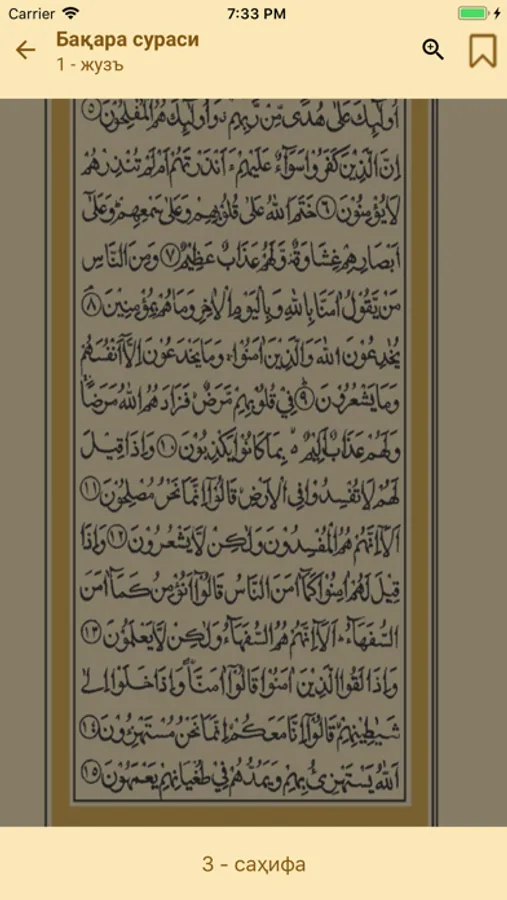 Carrier 7:33 PM
Бақара сураси
1 - жузъ
اُولٰٓئِكَ عَلٰى هُدًى مِّنْ رَّبِّهِمْ ۙ وَاُولٰٓئِكَ هُمُ الْمُفْلِحُوْنَ ٥
اِنَّ الَّذِيْنَ كَفَرُوْا سَوَآءٌ عَلَيْهِمْ ءَاَنْذَرْتَهُمْ اَمْ لَمْ تُنْذِرْهُمْ
لَا يُؤْمِنُوْنَ ٦ خَتَمَ اللّٰهُ عَلٰى قُلُوْبِهِمْ وَعَلٰى سَمْعِهِمْ ؕ وَعَلٰٓى
اَبْصَارِهِمْ غِشَاوَةٌ ۫ وَّلَهُمْ عَذَابٌ عَظِيْمٌ ٧ وَمِنَ النَّاسِ
مَنْ يَّقُوْلُ اٰمَنَّا بِاللّٰهِ وَبِالْيَوْمِ الْاٰخِرِ وَمَا هُمْ بِمُؤْمِنِيْنَ ٨
يُخٰدِعُوْنَ اللّٰهَ وَالَّذِيْنَ اٰمَنُوْا ۚ وَمَا يَخْدَعُوْنَ اِلَّآ اَنْفُسَهُمْ
وَمَا يَشْعُرُوْنَ ٩ فِيْ قُلُوْبِهِمْ مَّرَضٌ ۙ فَزَادَهُمُ اللّٰهُ مَرَضًا ۚ
وَلَهُمْ عَذَابٌ اَلِيْمٌ ۢ ۙ بِمَا كَانُوْا يَكْذِبُوْنَ ١٠ وَاِذَا قِيْلَ
لَهُمْ لَا تُفْسِدُوْا فِي الْاَرْضِ ۙ قَالُوْٓا اِنَّمَا نَحْنُ مُصْلِحُوْنَ ١١
اَلَآ اِنَّهُمْ هُمُ الْمُفْسِدُوْنَ وَلٰكِنْ لَّا يَشْعُرُوْنَ ١٢ وَاِذَا
قِيْلَ لَهُمْ اٰمِنُوْا كَمَآ اٰمَنَ النَّاسُ قَالُوْٓا اَنُؤْمِنُ كَمَآ اٰمَنَ
السُّفَهَآءُ ؕ اَلَآ اِنَّهُمْ هُمُ السُّفَهَآءُ وَلٰكِنْ لَّا يَعْلَمُوْنَ ١٣
وَاِذَا لَقُوا الَّذِيْنَ اٰمَنُوْا قَالُوْٓا اٰمَنَّا ۖ وَاِذَا خَلَوْا اِلٰى
شَيٰطِيْنِهِمْ ۙ قَالُوْٓا اِنَّا مَعَكُمْ ۙ اِنَّمَا نَحْنُ مُسْتَهْزِءُوْنَ ١٤
اَللّٰهُ يَسْتَهْزِئُ بِهِمْ وَيَمُدُّهُمْ فِيْ طُغْيَانِهِمْ يَعْمَهُوْنَ ١٥
3 - саҳифа